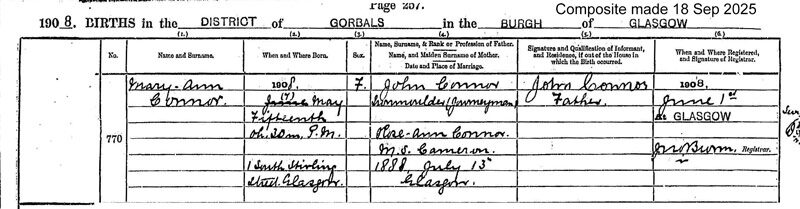 Page 257.
Composite made 18 Sep 2025
1908. BIRTHS in the DISTRICT of GORBALS in the BURGH of GLASGOW
(1.) (2.) (3.) (4.) (5.) (6.)
No. Name and Surname. When and Where Born. Sex. Name, Surname, & Rank or Profession of Father. Name, and Maiden Surname of Mother. Date and Place of Marriage. Signature and Qualification of Informant, and Residence, if out of the House in which the Birth occurred. When and Where Registered, and Signature of Registrar.
770
Mary-Ann
Connor
1908.
(7) May
Fifteenth
0h. 30m. P.M.
1 South Stirling
Street, Glasgow.
F.
John Connor
Ironmoulder (Journeyman)
Rose-Ann Connor
M.S. Cameron.
1888, July 13th
Glasgow.
John Connor
Father.
1908.
June 1st
At GLASGOW
Registrar.